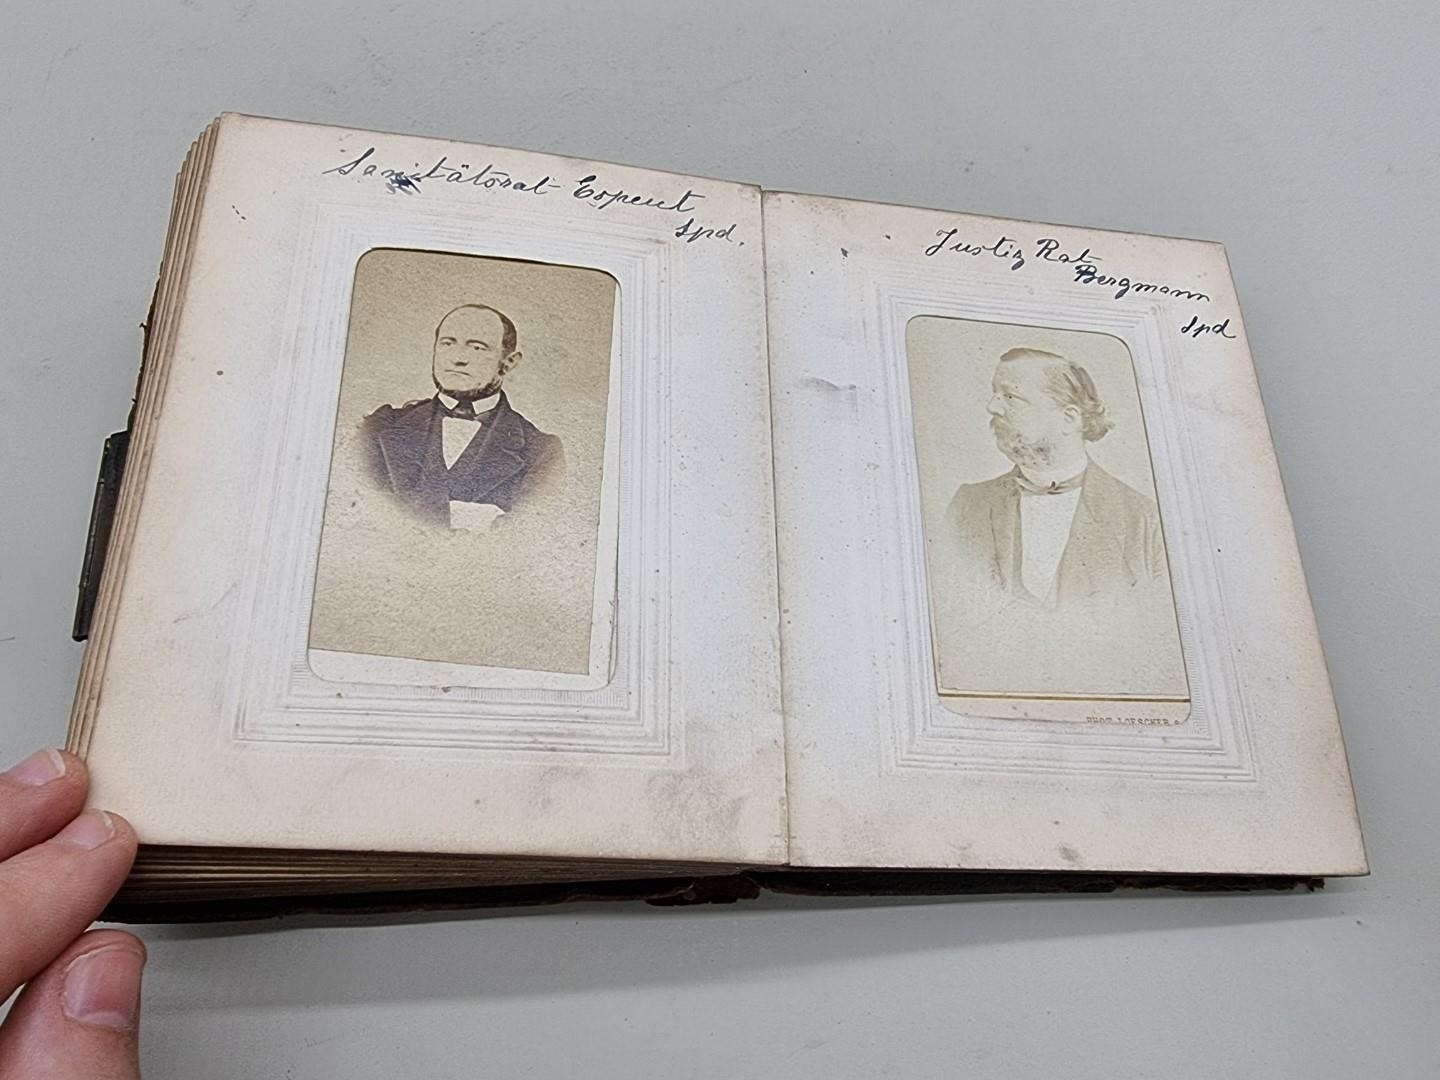 Sanitätsrat Espeut
Spd.
Justiz Rat
Bergmann
Spd
PHOT. LOESCHER &